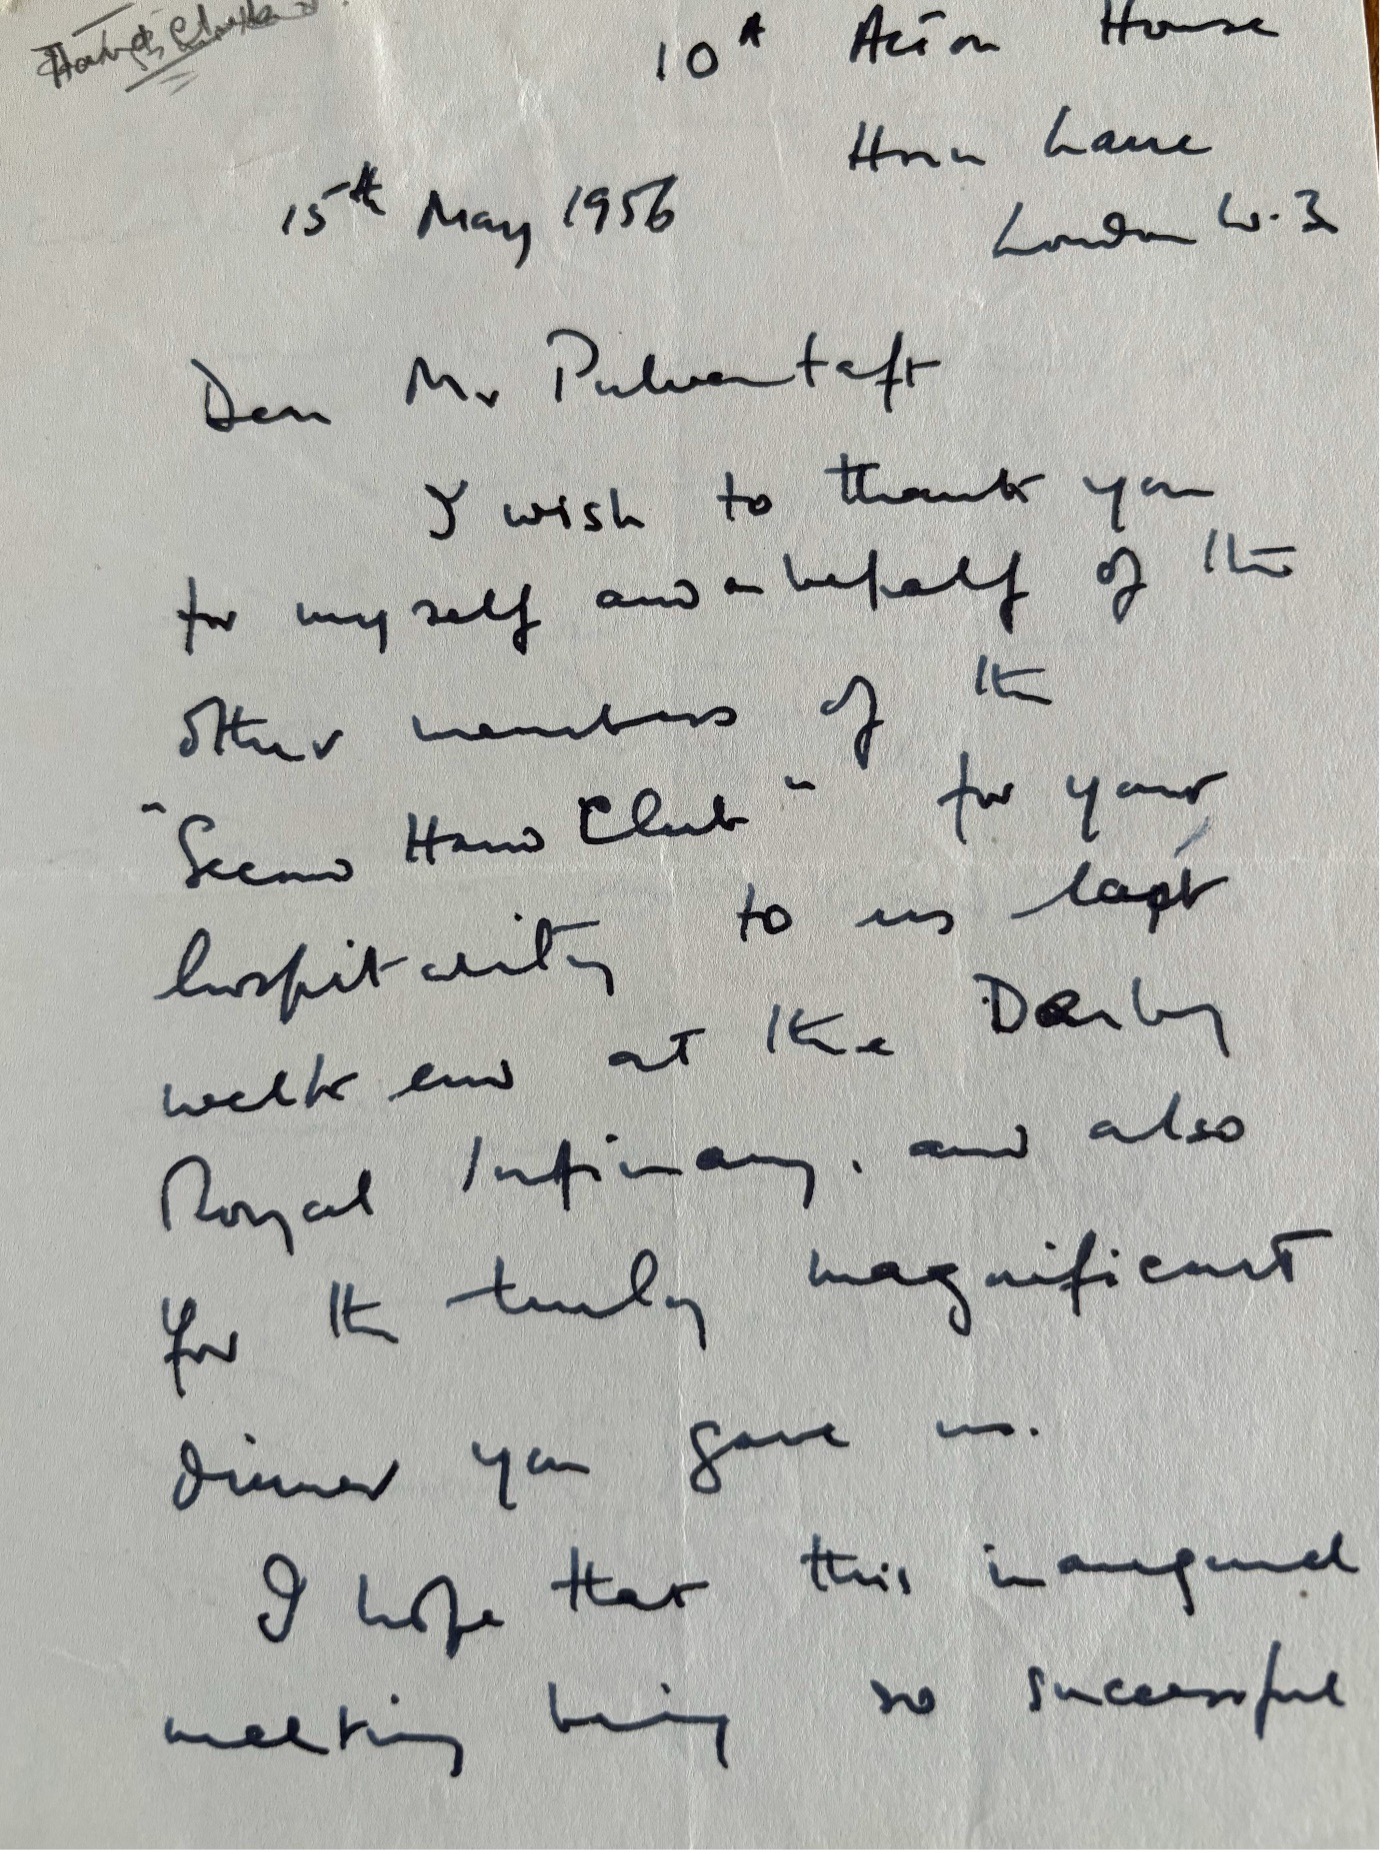 10A Acton House
Horn Lane
15th May 1956
London W.3
Dear Mr Pulvertaft
I wish to thank you
for myself and on behalf of the
other members of the
"Second Hand Club" for your
hospitality to us last
week end at the Derby
Royal Infirmary. and also
for the truly magnificent
dinner you gave us.
I hope that this inaugural
meeting being so successful